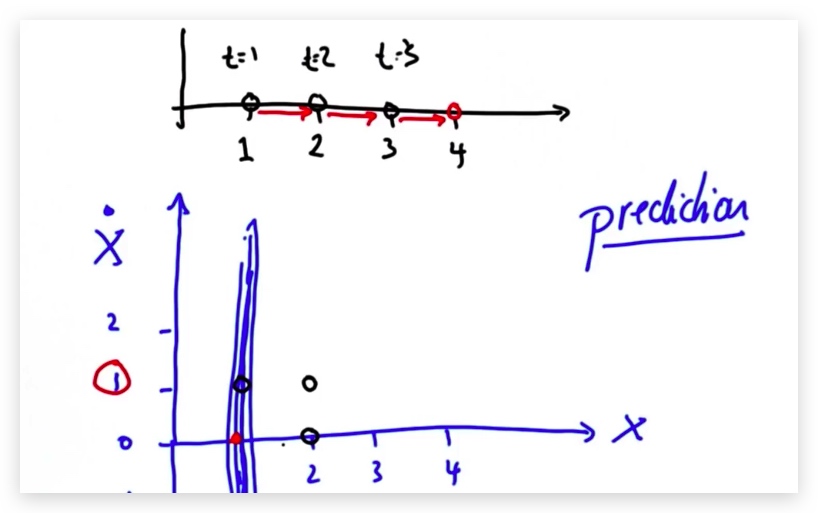 t=1 t=2 t=3
1 2 3 4
prediction
Ẋ
2
1
0 X
2 3 4